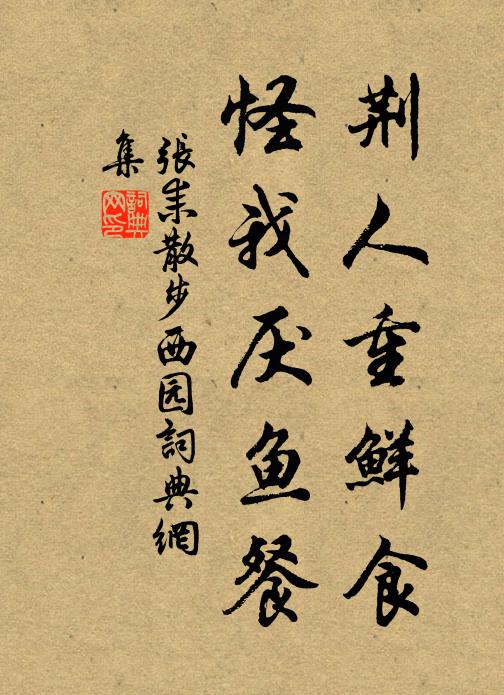 荆人重鲜食
怪我厌鱼餐
張耒散步西园詞典網
集
詞典网印